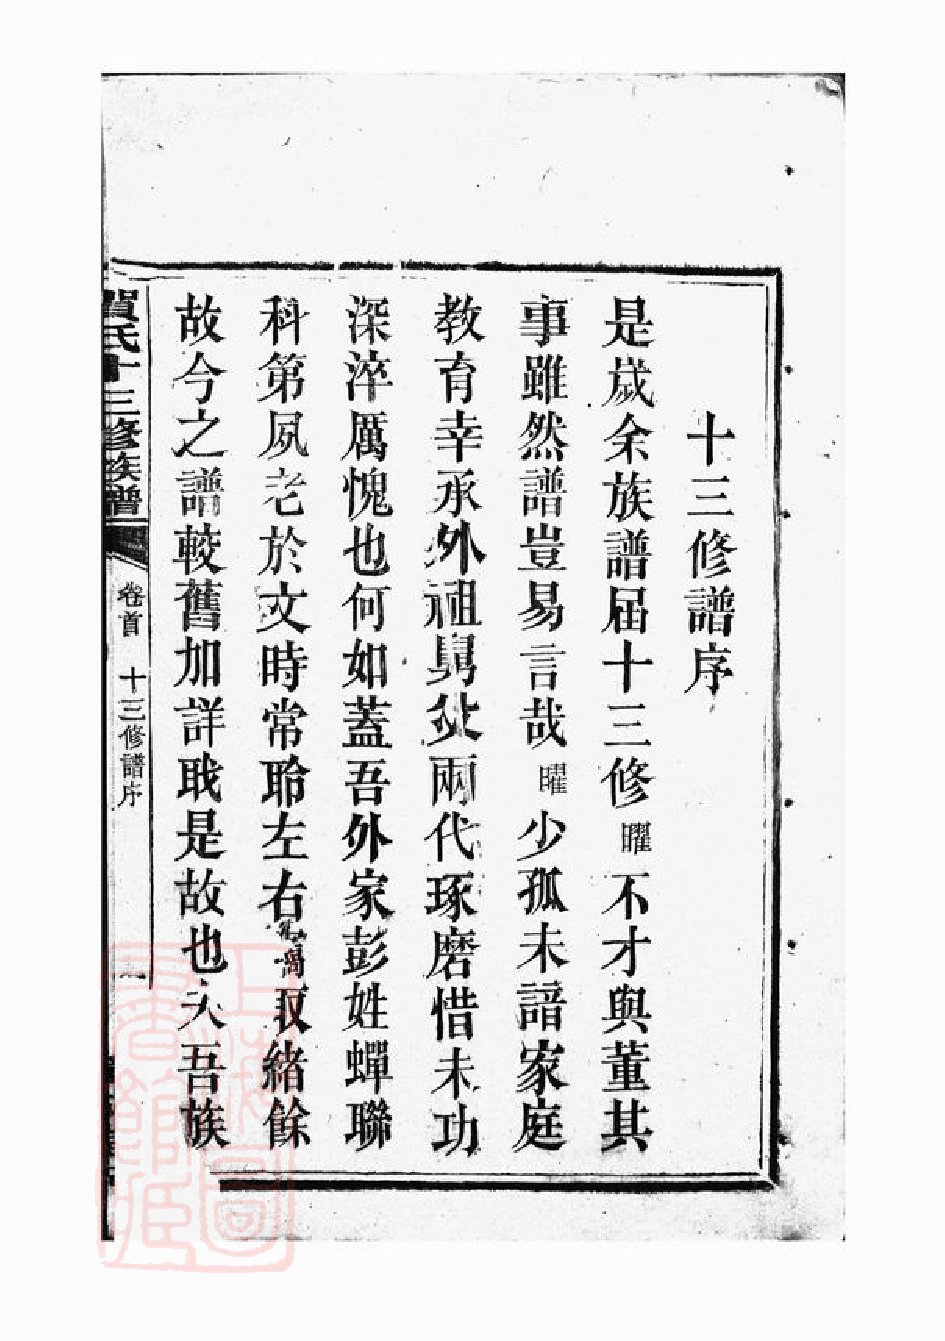 十三修譜序
是歲余族譜届十三修曜不才與董其
事雖然譜豈易言哉曜少孤未諳家庭
教育幸承外祖舅父兩代琢磨惜未功
深淬厲愧也何如蓋吾外家彭姓蟬聯
科第夙老於文時常聆左右竊取緒餘
故今之譜較舊加詳職是故也夫吾族
賀氏十三修族譜
卷首
十三修譜序
一
上海圖書館藏